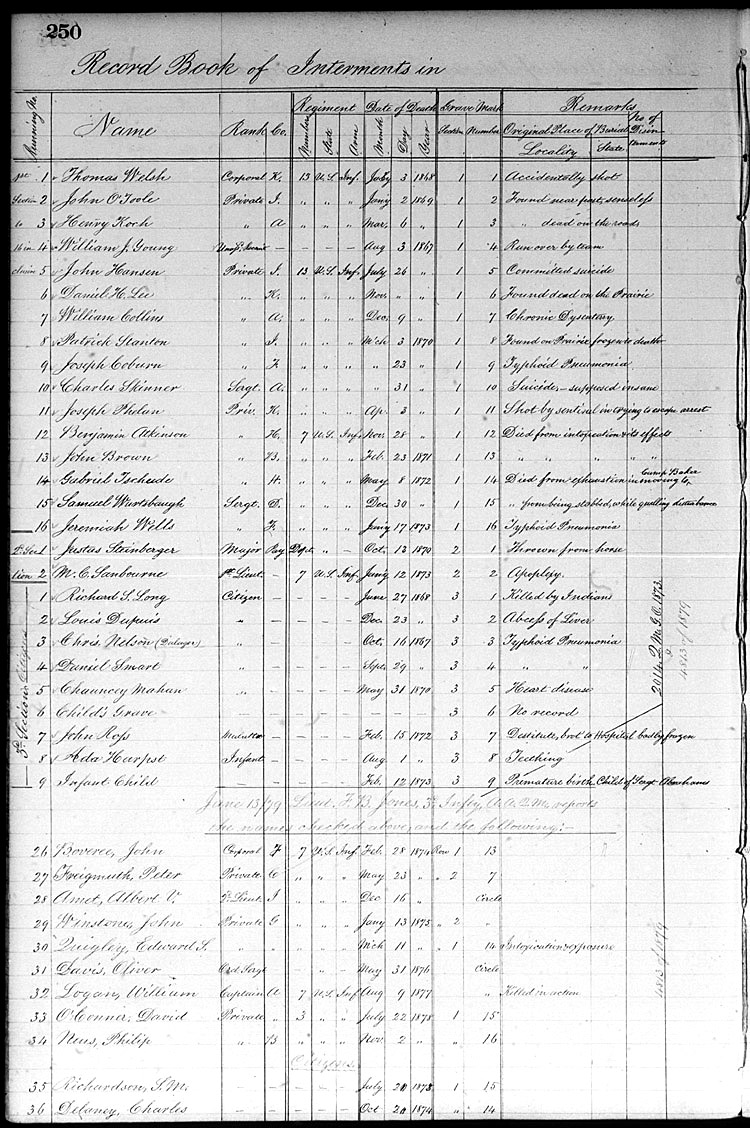 250
Record Book of Interments in
Running No. Name Rank Co. Regiment Date of Death Grave Mark Remarks
Number State Arm Month Day Year Section Number Original Place of Burial No. of Disin-terments
Locality State
1st 1 Thomas Welsh Corporal K. 13 U.S. Inf. July 3 1868 1 1 Accidentally shot
Section 2 John O'Toole Private I. " " " Jany 2 1869 1 2 Found near post, senseless
to 3 Henry Koch " A " " " Mar. 6 " 1 3 " dead on the road
16 in 4 William J. Young – – – – Aug 3 1867 1 4 Run over by team
5 John Hansen Private I. 13 U.S. Inf. July 26 " 1 5 Committed suicide
6 Daniel H. Lee " K. " " " Nov. " " 1 6 Found dead on the Prairie
7 William Collins " A. " " " Dec. 9 " 1 7 Chronic Dysentery
8 Patrick Stanton " I. " " " Mch 3 1870 1 8 Found on Prairie frozen to death
9 Joseph Coburn " F. " " " " 23 " 1 9 Typhoid Pneumonia
10 Charles Skinner Sergt. A. " " " " 31 " 1 10 Suicide,– supposed insane
11 Joseph Phelan Priv. K. " " " Ap. 3 " 1 11 Shot by sentinel in trying to escape arrest
12 Benjamin Atkinson " H. 7 U.S. Inf. Nov. 28 " 1 12 Died from intoxication & its effects
13 John Brown " B. " " " Feb. 23 1871 1 13 " " " "
14 Gabriel Tscheide " H. " " " May 8 1872 1 14 Died from exhaustion in moving to Camp Baker
15 Samuel Wurtsbaugh Sergt. D. " " " Dec. 30 " 1 15 " from being stabbed, while quelling disturbance
16 Jeremiah Wells " F. " " " Jany 17 1873 1 16 Typhoid Pneumonia
2d Sec 1 Justas Steinberger Major Pay Dept. " – Oct. 13 1870 2 1 Thrown from horse
tion 2 M. C. Sanbourne 1st Lieut. – 7 U.S. Inf. Jany 12 1873 2 2 Apoplexy.
3d Section, Citizens
1 Richard S. Long Citizen – – – – June 27 1868 3 1 Killed by Indians
2 Louis Dupuis " – – – – Dec. 23 " 3 2 Abcess of Liver
3 Chris. Nelson – – – – Oct. 16 1867 3 3 Typhoid Pneumonia
4 Daniel Smart – – – – Sept. 29 " 3 4 " "
5 Chauncey Mahan – – – – May 31 1870 3 5 Heart disease
6 Child's Grave – – – – – – – – 3 6 No record
7 John Ross Mulatto – – – – Feb. 15 1872 3 7 Destitute, brot to Hospital badly frozen
8 Ada Harpst Infant – – – – Aug 1 " 3 8 Teething
9 Infant Child – – – – Feb. 12 1873 3 9 Premature birth, Child of Sergt Abrahams
2014 Q.M.G.O. 1873.
4813 of 1879
June 13/79 Lieut. F. B. Jones, 3d Infty, A.A.Q.M., reports
the names checked above, and the following:–
26 Boveree, John Corporal F 7 U.S. Inf. Feb. 28 1874 Row 1 13
27 Freigmuth, Peter Private C " " " May 23 " " 2 7
28 Amet, Albert V. 1st Lieut. I " " " Dec 16 " Circle
29 Winstone, John Private G " " " Jany 13 1875 " 2 "
30 Quigley, Edward S. " " " " " Mch 11 " " 1 14 Intoxication & exposure
31 Davis, Oliver Ord Sergt – – – May 31 1876 Circle
32 Logan, William Captain A 7 U.S. Inf Aug 9 1877 " Killed in action
33 O'Conner, David Private " 3 " " July 22 1878 1 15
34 Neus, Philip " B " " " Nov. 2 " " 16
4813 of 1879
Citizens
35 Richardson, S.M. – – – – – July 20 1878 1 15
36 Delaney, Charles – – – – – Oct 20 1874 " 14